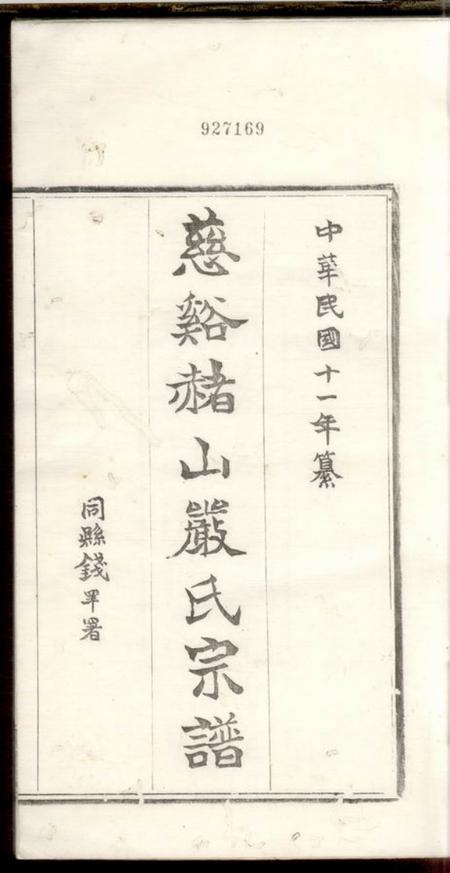 927169
中華民國十一年纂
慈谿赭山嚴氏宗譜
同縣錢罕署